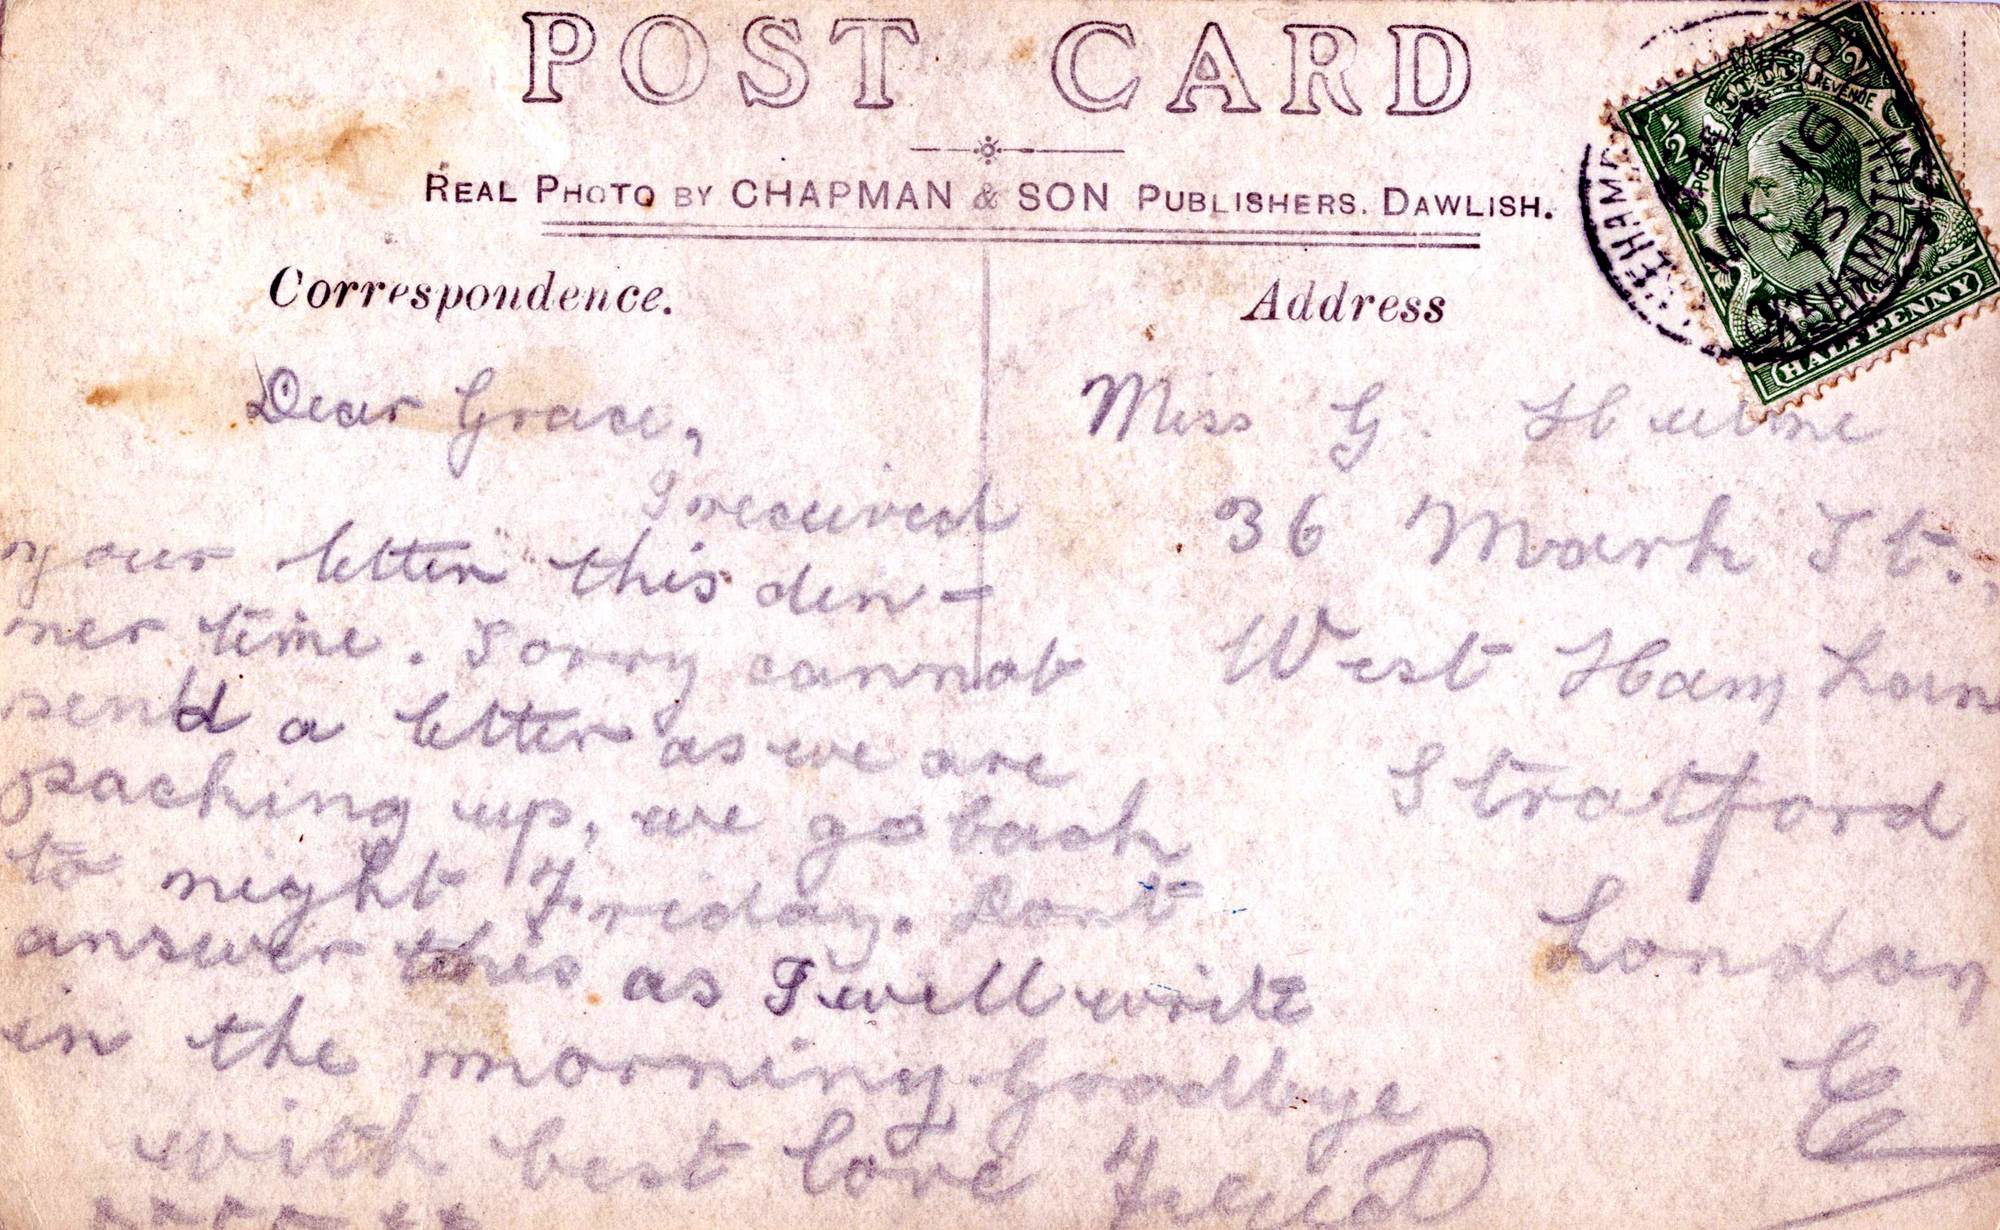 POST CARD
REAL PHOTO BY CHAPMAN & SON PUBLISHERS. DAWLISH.
Correspondence.
Dear Grace,
I received
your letter this din-
ner time. Sorry cannot
send a letter as we are
packing up, we go back
to night Friday. Dont
answer this as I will write
in the morning. Goodbye
with best love
Address
Miss G. Hulme
36 Mark St.,
West Ham Lane
Stratford
London
E
1/2 POSTAGE REVENUE 1/2
HALFPENNY
16
13